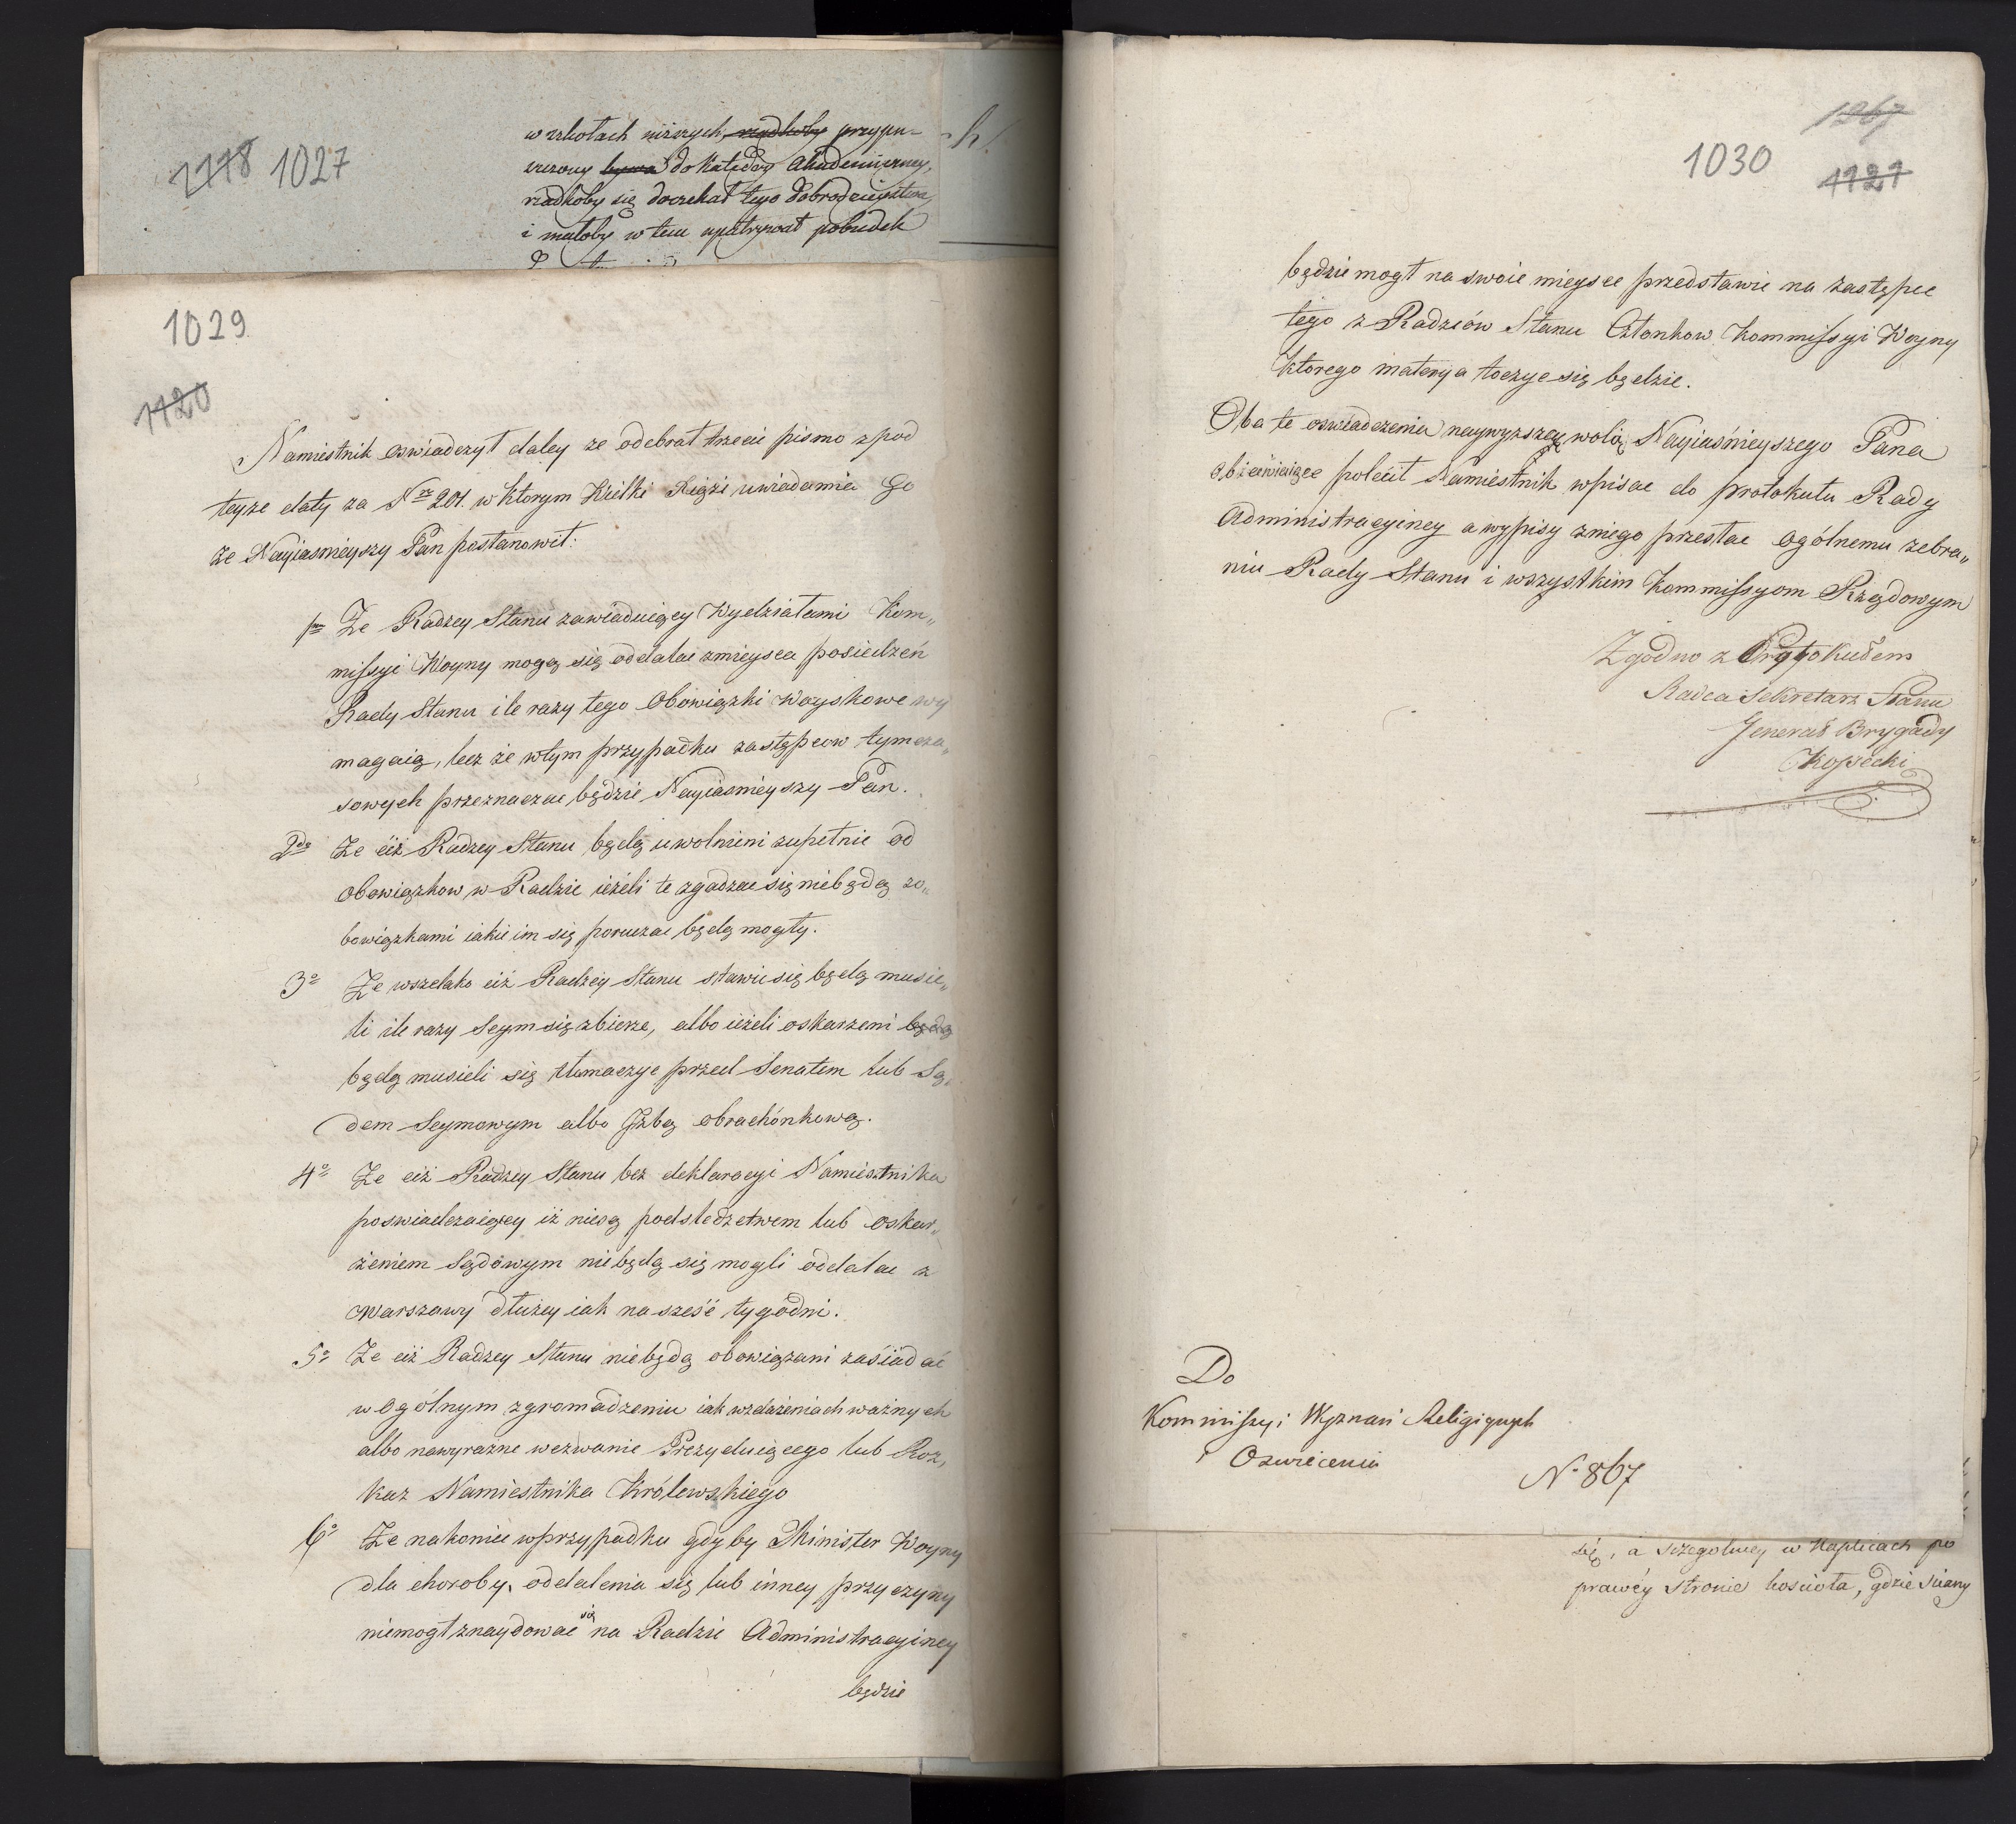 1118 1027
w szkołach niższych, rzadkoby przypu-
szczony bywa do Katedry Akademiczney,
rzadkoby się doczekał tego dobrodzieystwa,
i małoby w tem upatrywał pobudek
1029
1120
Namiestnik oswiadczył daley ze odebrał trzecie pismo zpod
teyze daty za Nr 201. w ktorym Wielki Xiąże uwiadamia Go
ze Nayiasnieyszy Pan postanowił:
1mo Ze Radzcy Stanu zawiaduiący Wydziałami Kom„
missyi Woyny mogą się oddalac zmieysca posiedzeń
Rady Stanu ile razy tego Obowiązki Woyskowe wy
magaią, lecz że wtym przypadku zastępcow tymcza„
sowych przeznaczac będzie Nayiasnieyszy Pan.
2do Ze ciż Radzcy Stanu będą uwolnieni zupełnie od
Obowiązkow w Radzie ieżeli te zgadzac się niebędą zo„
bowiązkami iakie im się poruczac będą mogły.
3o Ze wszelako ciż Radzcy Stanu stawic się będą musie„
li ile razy Seym się zbierze, albo ieżeli oskarzeni będą
będą musieli się tłomaczyc przed Senatem lub Są„
dem Seymowym albo Izbą obrachónkową.
4o Ze ciż Radzcy Stanu bez deklaracyi Namiestnika
poswiadczaiącey iż niesą podsledztwem lub oskar„
żeniem Sądowym niebędą się mogli oddalac z
Warszawy dłużey iak na sześć tygodni.
5o Ze ciż Radzcy Stanu niebędą obowiązani zasiadać
w Ogólnym zgromadzeniu iak wzdażeniach ważnych
albo nawyraźne wezwanie Prezyduiącego lub Roz„
kaz Namiestnika Królewskiego
6o Ze nakoniec wprzypadku gdyby Minister Woyny
dla choroby, oddalenia się lub inney przyczyny
niemogł znaydowac się na Radzie Administracyiney
będzie
1267
1030
1121
będzie mogł na swoie mieysce przedstawic na zastępce
tego z Radzców Stanu Członkow Kommissyi Woyny
Ktorego materya toczyc się będzie.
Oba te oswiadczenia naywyższą wolą Nayiaśnieyszego Pana
obiawiaiące polecił Namiestnik wpisac do protokułu Rady
Administracyiney a wypisy zniego przesłac ogólnemu zebra„
niu Rady Stanu i wszystkim Kommissyom Rządowym
Zgodno z Protokułem
Radca Sekretarz Stanu
Generał Brygady
Kossecki
Do
Kommissyi Wyznań Religiynych
i Oswiecenia
No 867
się, a szczegolniey w Kaplicach po
prawéy stronie koscioła, gdzie sciany